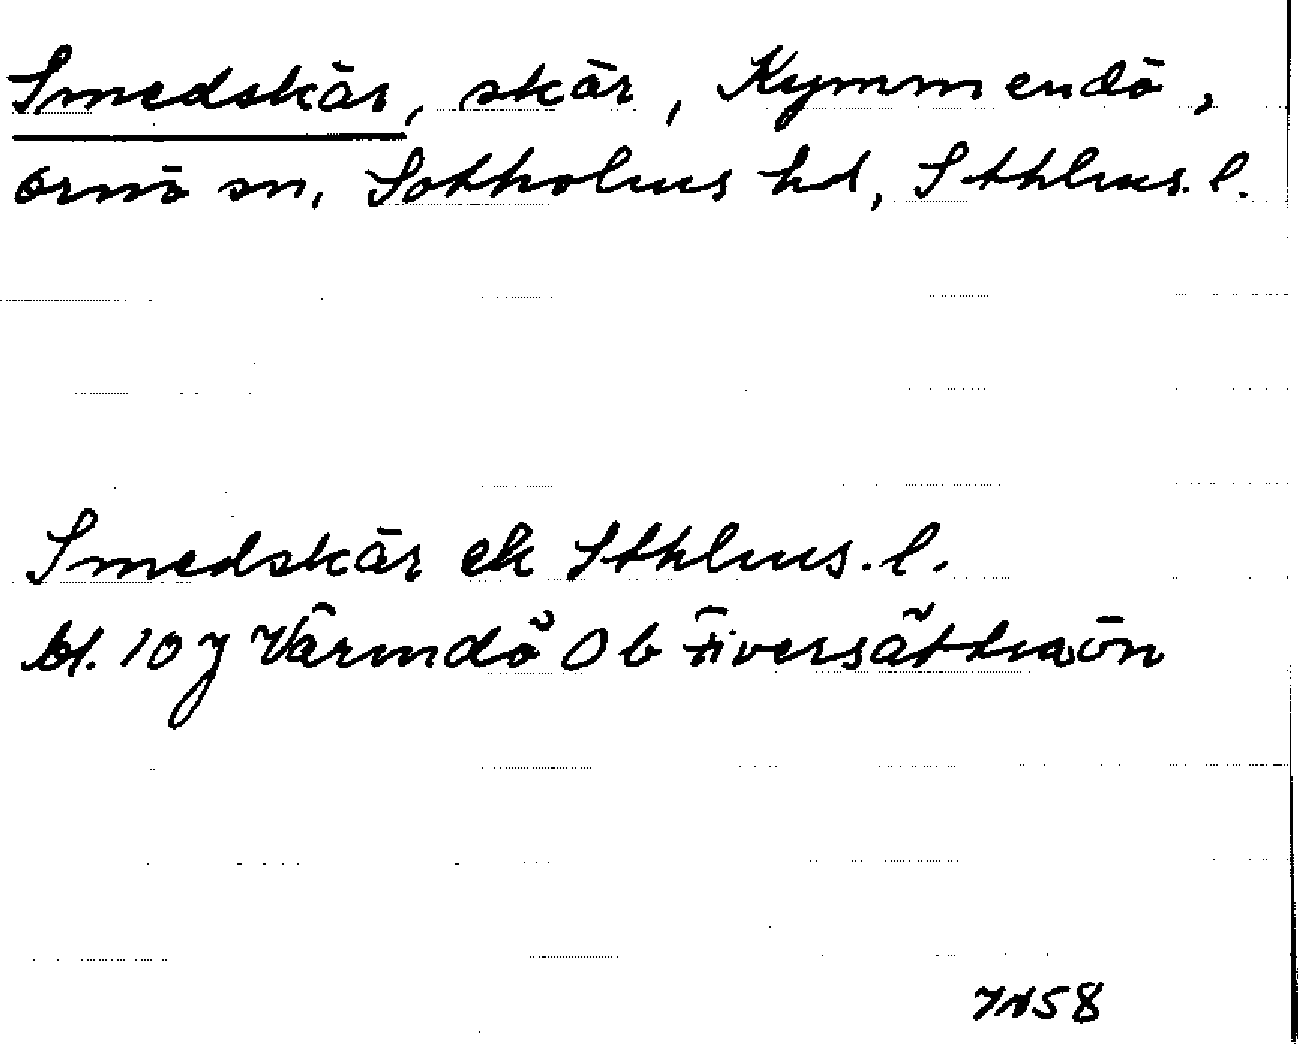 Smedskär, skär, Kymmendö,
Ornö sn, Sotholms hd, Sthlms. l.
Smedskär ek Sthlms. l.
bl. 10 J Värmdö Ob